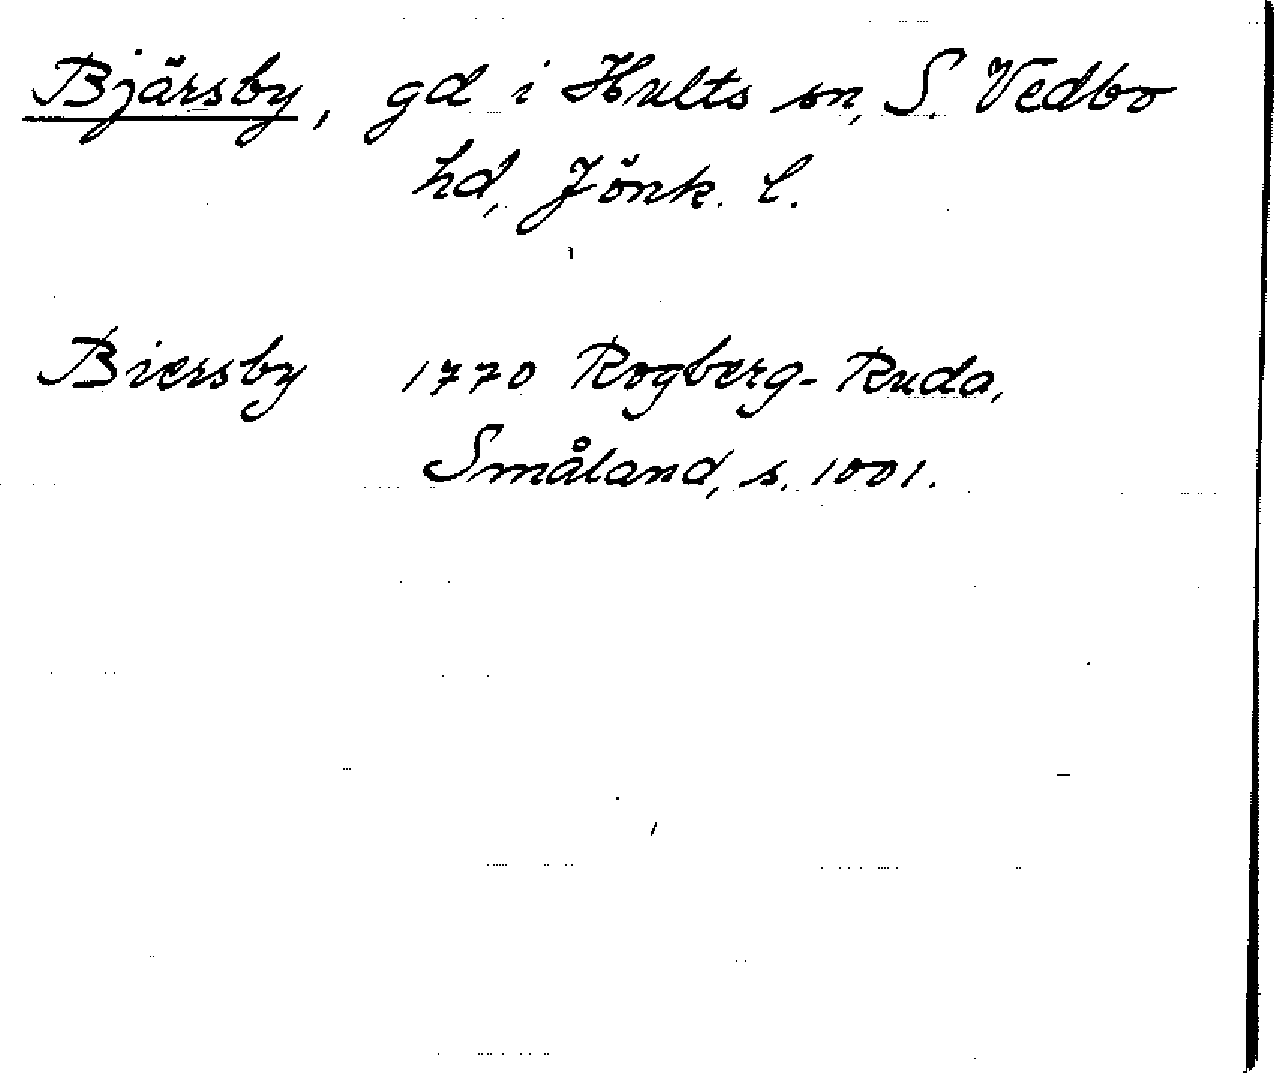 Bjärsby, gd i Hults sn, S. Vedbo
hd, Jönk. l.
Biersby 1770 Rogberg-Ruda,
Småland, s. 1001.